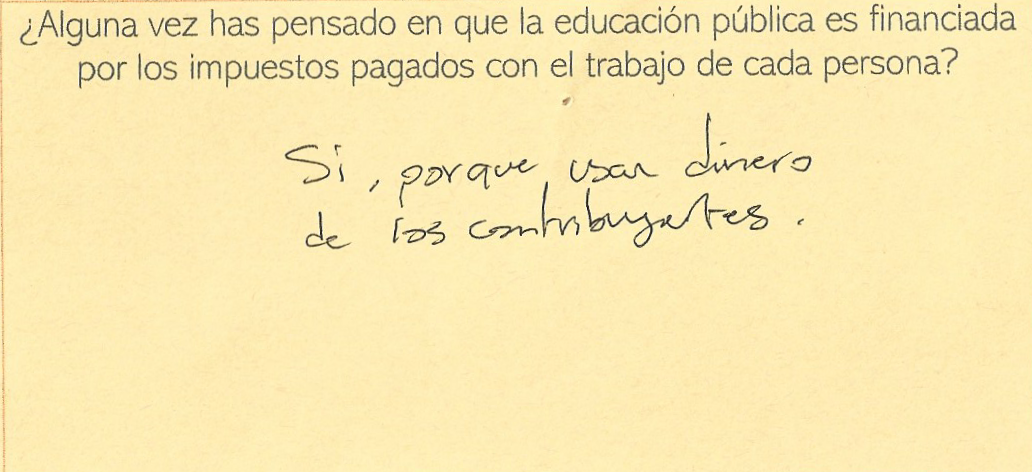 ¿Alguna vez has pensado en que la educación pública es financiada
por los impuestos pagados con el trabajo de cada persona?
Si, porque usan dinero
de los contribuyentes.